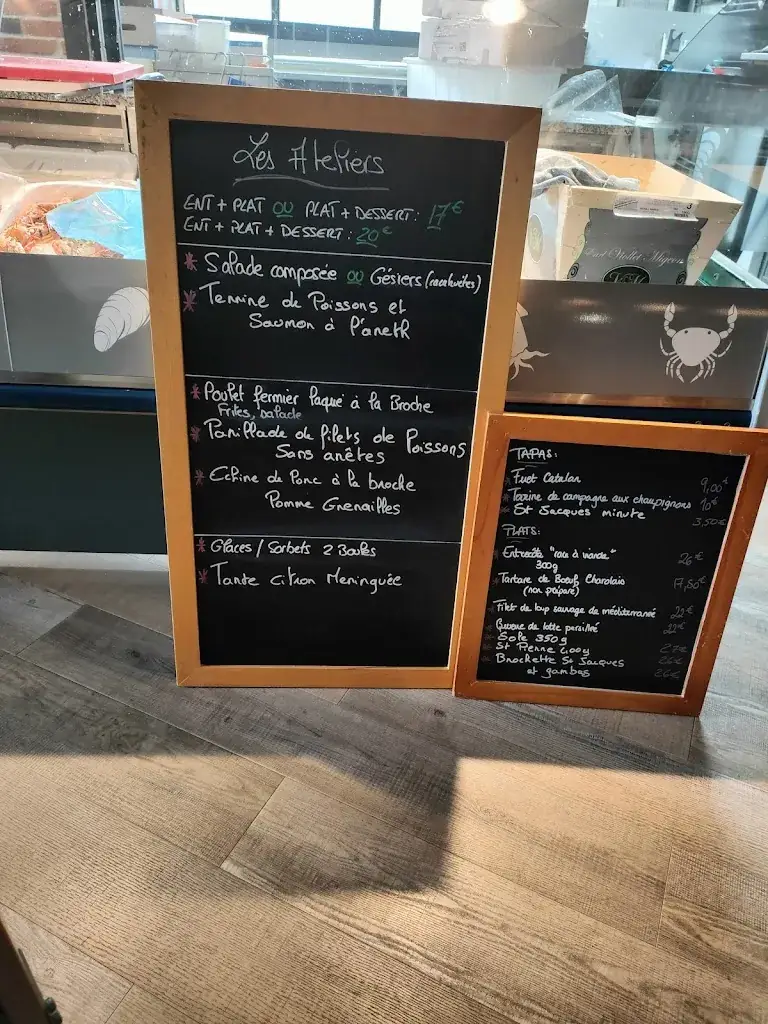 Les Ateliers
ENT + PLAT OU PLAT + DESSERT : 17€
ENT + PLAT + DESSERT : 20€
* Salade composée ou Gésiers
* Terrine de Poissons et
Saumon à l'aneth
* Poulet fermier laqué à la Broche
Frites, salade
* Parillade de filets de Poissons
Sans arêtes
* Echine de Porc à la broche
Pomme Grenailles
* Glaces / Sorbets 2 Boules
* Tarte citron Meringuée
TAPAS :
* Fuet Catalan 9,00€
* Terrine de campagne aux champignons 10€
* St Jacques minute 3,50€
PLATS :
* Entrecôte "race à viande" 26€
300g
* Tartare de Boeuf Charolais 17,50€
(non préparé)
* Filet de loup sauvage de méditerranné 22€
* Queue de lotte persillé 22€
* Sole 350g 27€
* St Pierre 400g 26€
* Brochette St Jacques
et gambas 26€